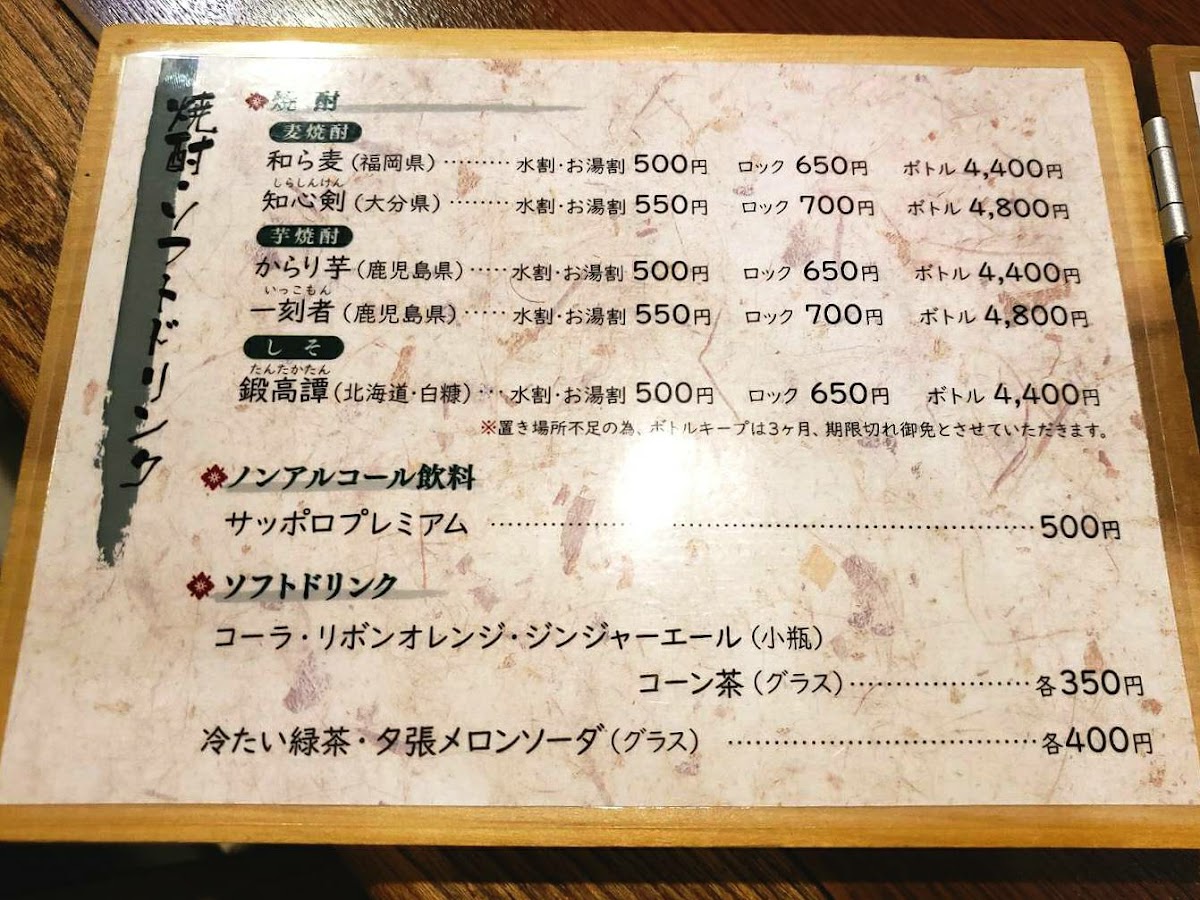 焼酎・ソフトドリンク
焼酎
麦焼酎
和ら麦(福岡県)………水割・お湯割 500円 ロック 650円 ボトル 4,400円
しらしんけん
知心剣(大分県)………水割・お湯割 550円 ロック 700円 ボトル 4,800円
芋焼酎
からり芋(鹿児島県)……水割・お湯割 500円 ロック 650円 ボトル 4,400円
いっこもん
一刻者(鹿児島県)……水割・お湯割 550円 ロック 700円 ボトル 4,800円
しそ
たんたかたん
鍛高譚(北海道・白糠)…水割・お湯割 500円 ロック 650円 ボトル 4,400円
※置き場所不足の為、ボトルキープは3ヶ月、期限切れ御免とさせていただきます。
ノンアルコール飲料
サッポロプレミアム ……………………………………500円
ソフトドリンク
コーラ・リボンオレンジ・ジンジャーエール(小瓶)
コーン茶(グラス)…………………各350円
冷たい緑茶・夕張メロンソーダ(グラス) …………………………各400円